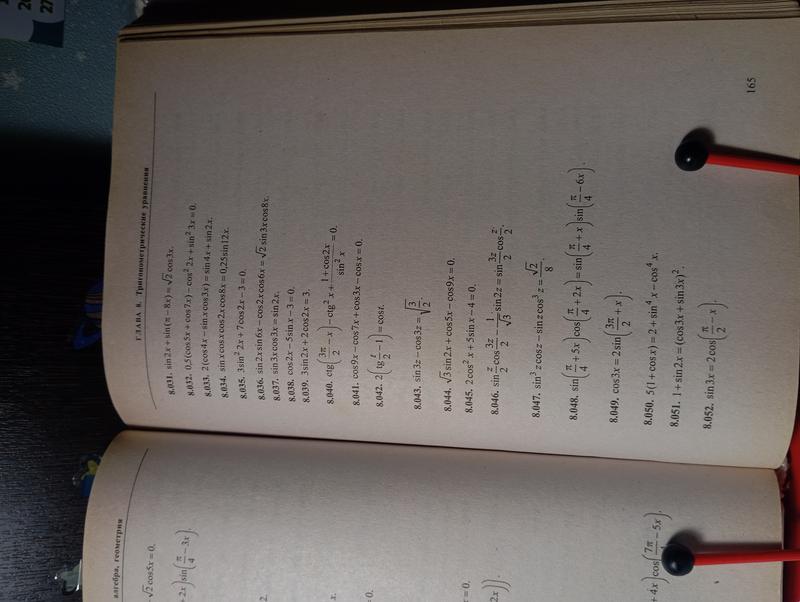 алгебра, геометрия
√2 cos5x = 0.
+ 2x) sin(π/4 − 3x).
2.
x.
= 0.
x = 0.
2x)].
+ 4x) cos(7π/ − 5x).
ГЛАВА 8. Тригонометрические уравнения
8.031. sin2x + sin(π − 8x) = √2 cos3x.
8.032. 0,5(cos5x + cos7x) − cos² 2x + sin² 3x = 0.
8.033. 2(cos4x − sin x cos3x) = sin4x + sin2x.
8.034. sin x cos x cos2x cos8x = 0,25 sin12x.
8.035. 3sin² 2x + 7cos2x − 3 = 0.
8.036. sin2x sin6x − cos2x cos6x = √2 sin3x cos8x.
8.037. sin3x cos3x = sin2x.
8.038. cos2x − 5sin x − 3 = 0.
8.039. 3sin2x + 2cos2x = 3.
8.040. ctg(3π/2 − x) − ctg² x + (1 + cos2x)/sin² x = 0.
8.041. cos9x − cos7x + cos3x − cos x = 0.
8.042. 2(tg t/2 − 1) = cos t.
8.043. sin3z − cos3z = √(3/2).
8.044. √3 sin2x + cos5x − cos9x = 0.
8.045. 2cos² x + 5sin x − 4 = 0.
8.046. sin z/2 cos 3z/2 − 1/√3 sin2z = sin 3z/2 cos z/2.
8.047. sin³ z cos z − sin z cos³ z = √2/8.
8.048. sin(π/4 + 5x) cos(π/4 + 2x) = sin(π/4 + x) sin(π/4 − 6x).
8.049. cos3x = 2sin(3π/2 + x).
8.050. 5(1 + cos x) = 2 + sin⁴ x − cos⁴ x.
8.051. 1 + sin2x = (cos3x + sin3x)².
8.052. sin3x = 2cos(π/2 − x).
165